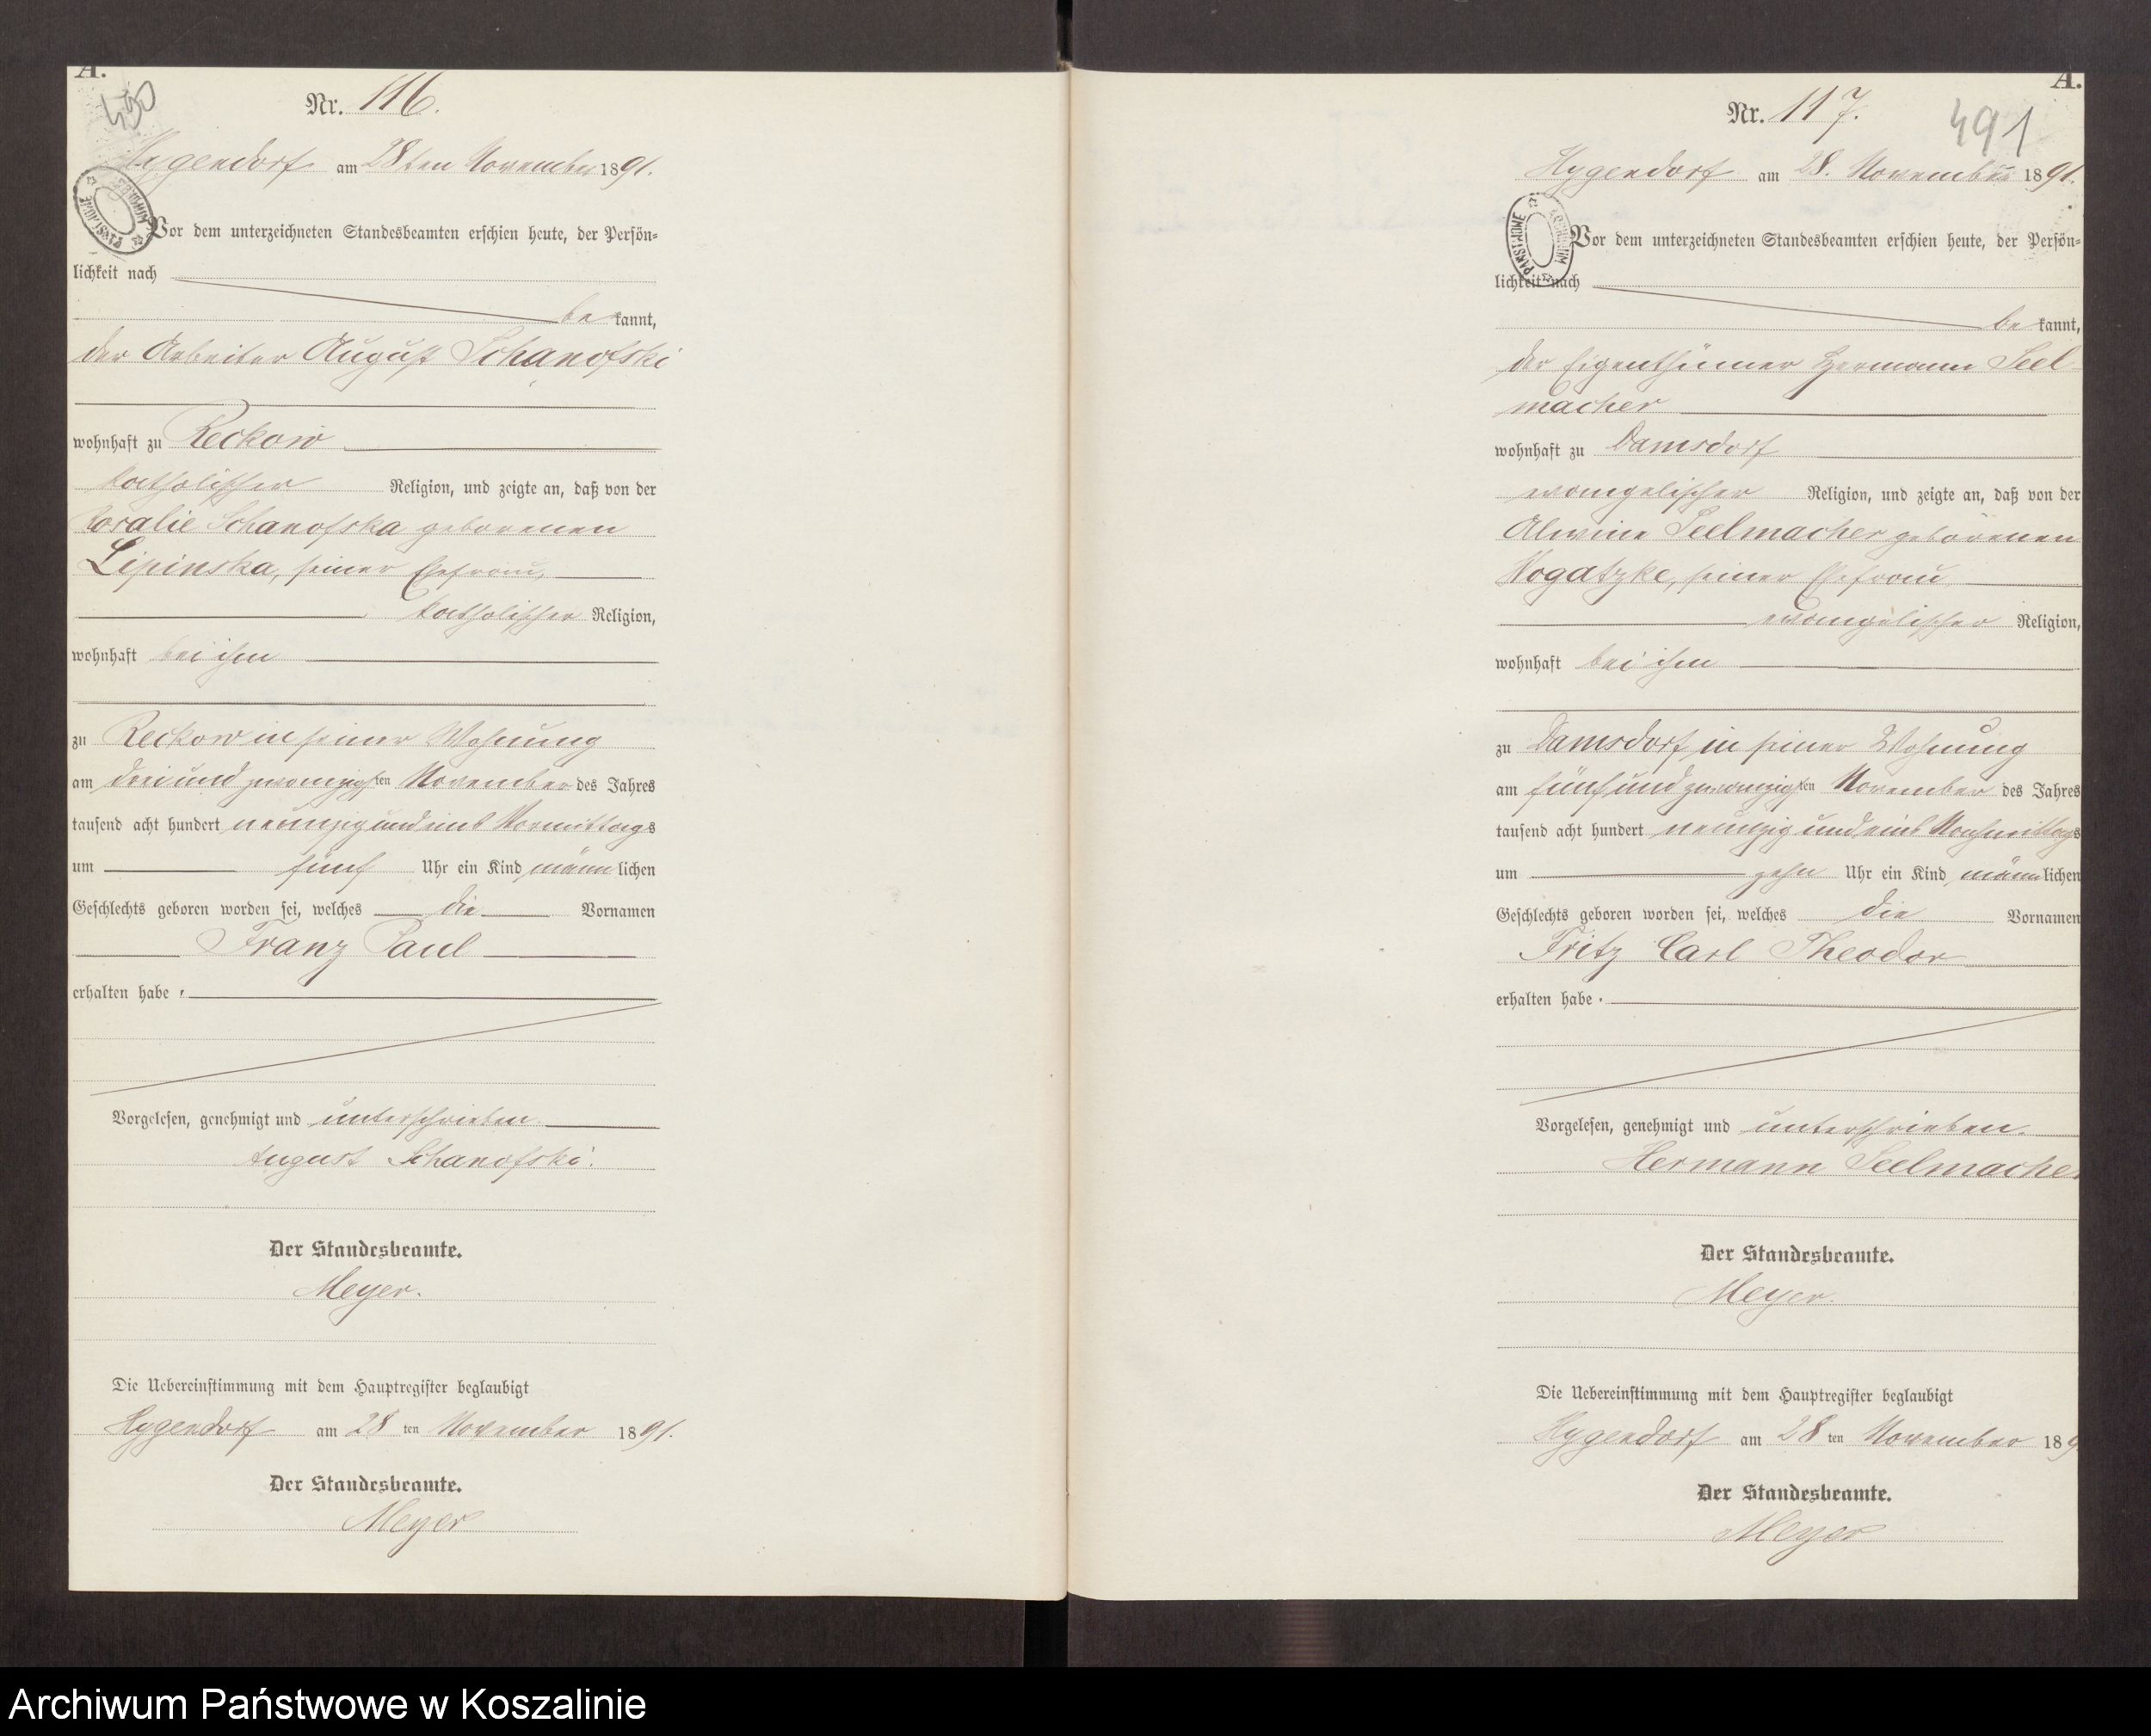 A.
490
Nr. 116.
Hygendorf am 28ten November 1891.
Vor dem unterzeichneten Standesbeamten erschien heute, der Persön=
lichkeit nach
be kannt,
der Arbeiter August Schanofski
wohnhaft zu Reckow
katholischer Religion, und zeigte an, daß von der
Roralie Schanofska geborenen
Lipinska, seiner Ehefrau,
katholischer Religion,
wohnhaft bei ihm
zu Reckow in seiner Wohnung
am drei und zwanzigsten November des Jahres
tausend acht hundert neunzig und eins Vormittags
um fünf Uhr ein Kind männlichen
Geschlechts geboren worden sei, welches die Vornamen
Franz Paul
erhalten habe.
Vorgelesen, genehmigt und unterschrieben.
August Schanofski.
Der Standesbeamte.
Meyer.
Die Uebereinstimmung mit dem Hauptregister beglaubigt
Hygendorf am 28 ten November 1891.
Der Standesbeamte.
Meyer
A.
491
Nr. 117.
Hygendorf am 28. November 1891.
Vor dem unterzeichneten Standesbeamten erschien heute, der Persön=
lichkeit nach
be kannt,
der Eigenthümer Hermann Seel-
macher
wohnhaft zu Damsdorf
evangelischer Religion, und zeigte an, daß von der
Alwine Seelmacher geborenen
Nogatzke, seiner Ehefrau
evangelischer Religion,
wohnhaft bei ihm
zu Damsdorf in seiner Wohnung
am fünf und zwanzigsten November des Jahres
tausend acht hundert neunzig und eins Nachmittags
um zehn Uhr ein Kind männlichen
Geschlechts geboren worden sei, welches die Vornamen
Fritz Carl Theodor
erhalten habe.
Vorgelesen, genehmigt und unterschrieben.
Hermann Seelmacher
Der Standesbeamte.
Meyer.
Die Uebereinstimmung mit dem Hauptregister beglaubigt
Hygendorf am 28 ten November 189
Der Standesbeamte.
Meyer
Archiwum Państwowe w Koszalinie